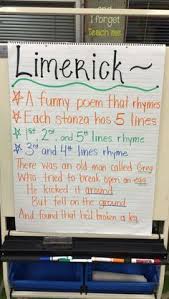 and I forget
teach me
Limerick~
A funny poem that rhymes
Each stanza has 5 lines
1st, 2nd, and 5th lines rhyme
3rd and 4th lines rhyme
There was an old man called Greg
Who tried to break open an egg
He kicked it around
But fell on the ground
And found that he'd broken a leg